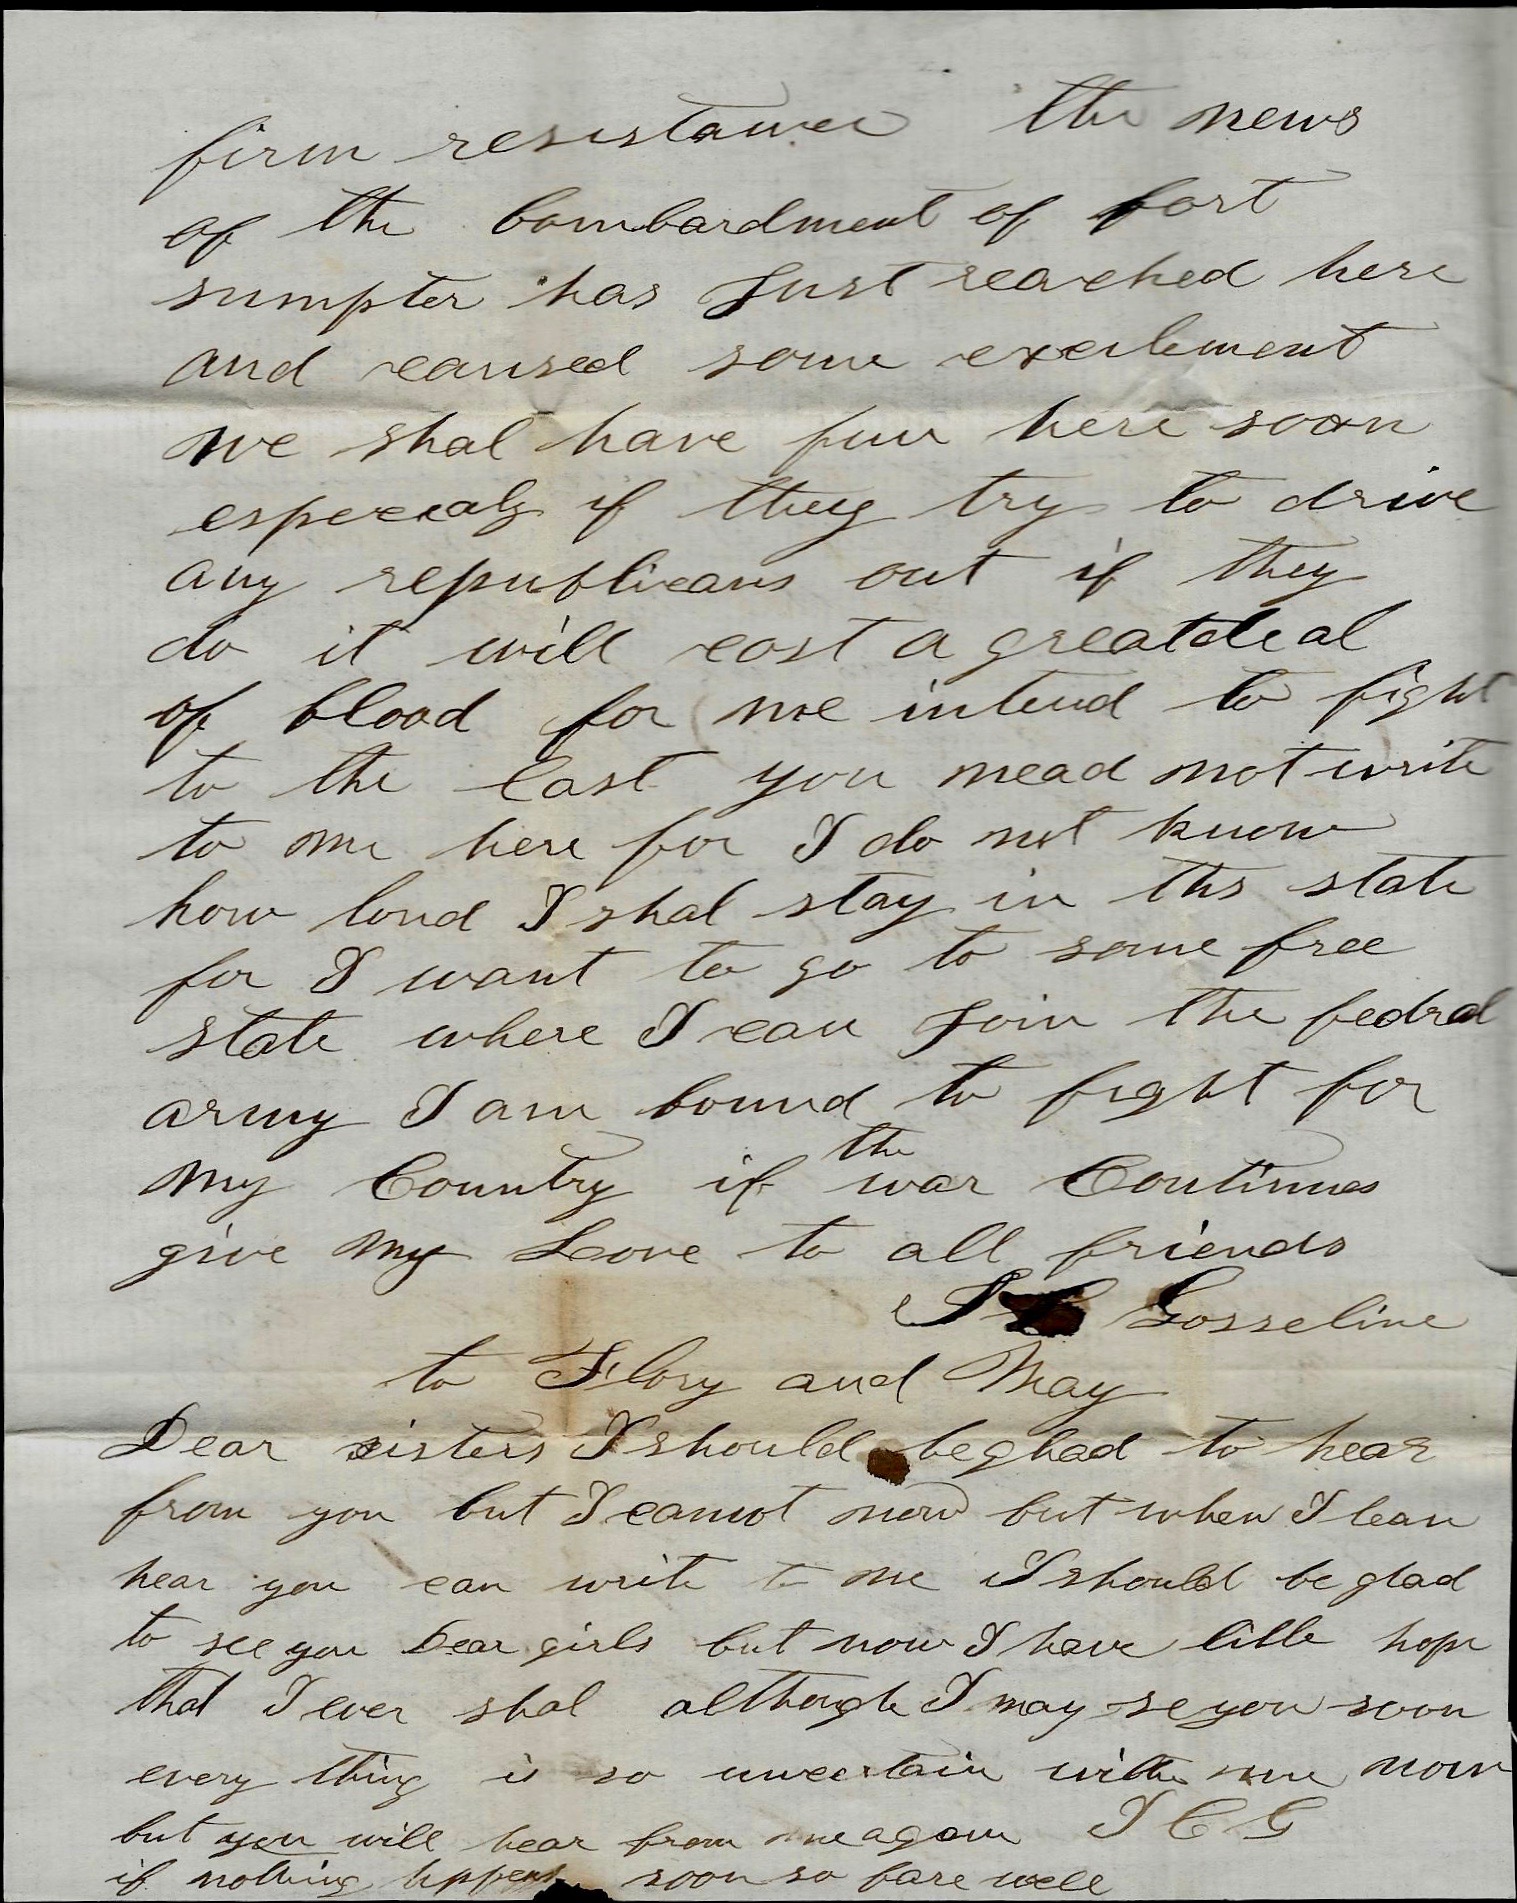 firm resistance the news
of the bombardment of fort
sumpter has Just reached here
and caused some excitement
we shal have fun here soon
especialy if they try to drive
any republicans out if they
do it will cost a great deal
of blood for we intend to fight
to the last you nead not write
to me here for I do not know
how lond I shal stay in ths state
for I want to go to some free
state where I can Join the fedral
army I am bound to fight for
my Country if the war Continues
give my Love to all friends
Gosseline
to Flory and May
Dear sisters I should be glad to hear
from you but I canot now but when I can
hear you can write to me I should be glad
to see you Dear girls but now I have little hope
that I ever shal although I may se you soon
every thing is so uncertain with me now
but you will hear from me again J C G
if nothing hppens soon so fare well